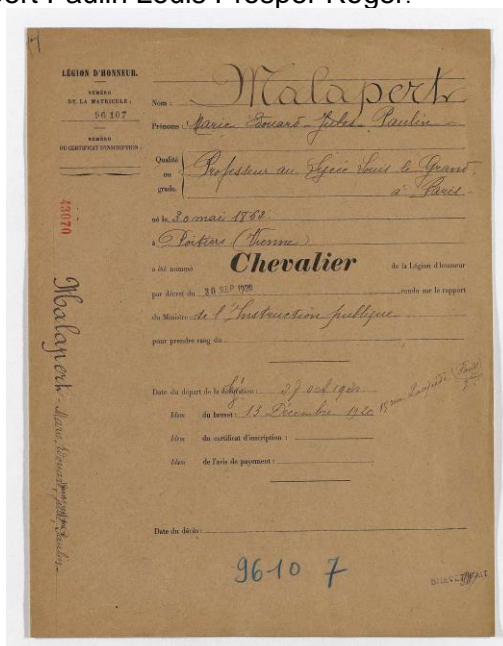 ert Paulin Louis Prosper Roger.
LÉGION D'HONNEUR.
NUMÉRO
DE LA MATRICULE :
96 107
NUMÉRO
DU CERTIFICAT D'INSCRIPTION :
Nom : Malapert
Prénoms : Marie Edouard Jules Paulin
Qualité ou grade. Professeur au Lycée Louis le Grand
à Paris
né le 30 mai 1862
à Poitiers (Vienne)
a été nommé Chevalier de la Légion d'honneur
par décret du 30 SEP 1920 rendu sur le rapport
du Ministre de l'Instruction publique
pour prendre rang du
Date du départ de la
Idem du brevet : 13 Décembre 1920
Idem du certificat d'inscription :
Idem de l'avis de payement :
Date du décès :
9610 7
43070
Malapert - Marie, Edouard, Paulin